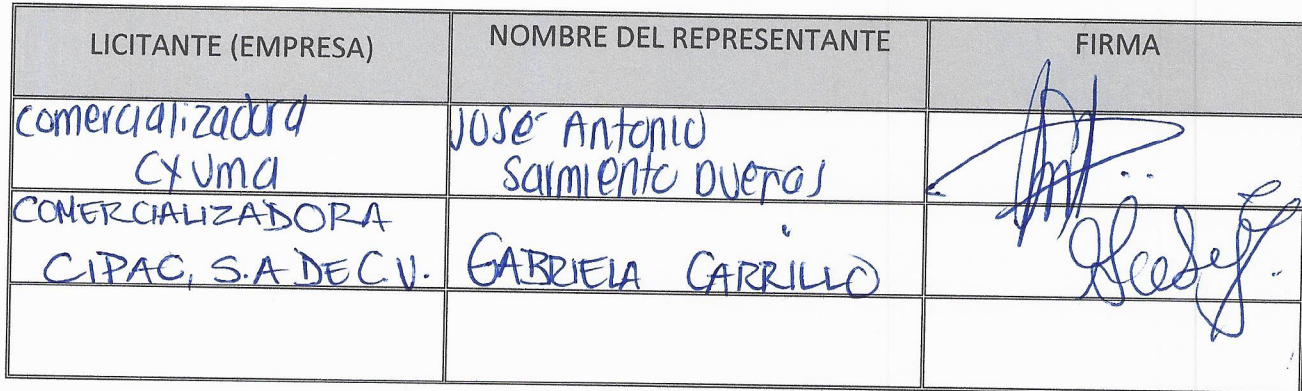 LICITANTE (EMPRESA) NOMBRE DEL REPRESENTANTE FIRMA
comercializadora
CYUma
José Antonio
Sarmiento Dueñas
COMERCIALIZADORA
CIPAC, S.A DE C.V.
GABRIELA CARRILLO